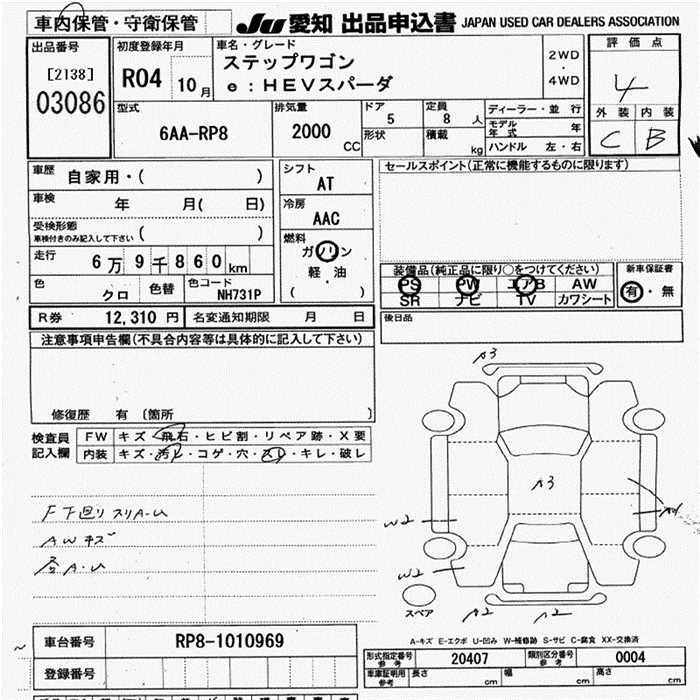 車内保管・守衛保管
JU 愛知 出品申込書 JAPAN USED CAR DEALERS ASSOCIATION
出品番号
[2138]
03086
初度登録年月
R04 10月
車名・グレード
ステップワゴン
e:HEVスパーダ
2WD
・
4WD
評価点
4
外装 内装
C B
型式
6AA-RP8
排気量
2000 CC
ドア
5
形状
定員
8 人
積載
kg
ディーラー・並行
モデル年式 年
ハンドル 左・右
車歴 自家用・( )
車検 年 月( 日)
受検形態
車検付きのみ記入して下さい ( )
走行 6万9千860km
色 クロ 色替 色コード NH731P
シフト
AT
冷房
AAC
燃料
ガソリン
軽・油
( )
セールスポイント(正常に機能するものに限ります)
装備品(純正品に限り○をつけてください)
PS PW エアB AW
SR ナビ TV カワシート
新車保証書
有・無
R券 12,310円 名変通知期限 月 日
後日品
注意事項申告欄(不具合内容等は具体的に記入して下さい)
修復歴 有 〔箇所 〕
検査員記入欄
FW キズ・飛石・ヒビ割・リペア跡・X要
内装 キズ・汚れ・コゲ・穴・スレ・キレ・破レ
FT廻りスリA-U
AWキズ
各A.U
A3
A3
W2
A1
W2
A2
A2
スペア
A-キズ E-エクボ U-凹み W-補修跡 S-サビ C-腐食 XX-交換済
車台番号 RP8-1010969
登録番号
形式指定番号 参考 20407 類別区分番号 参考 0004
車庫証明用 参考 長さ cm 幅 cm 高さ cm